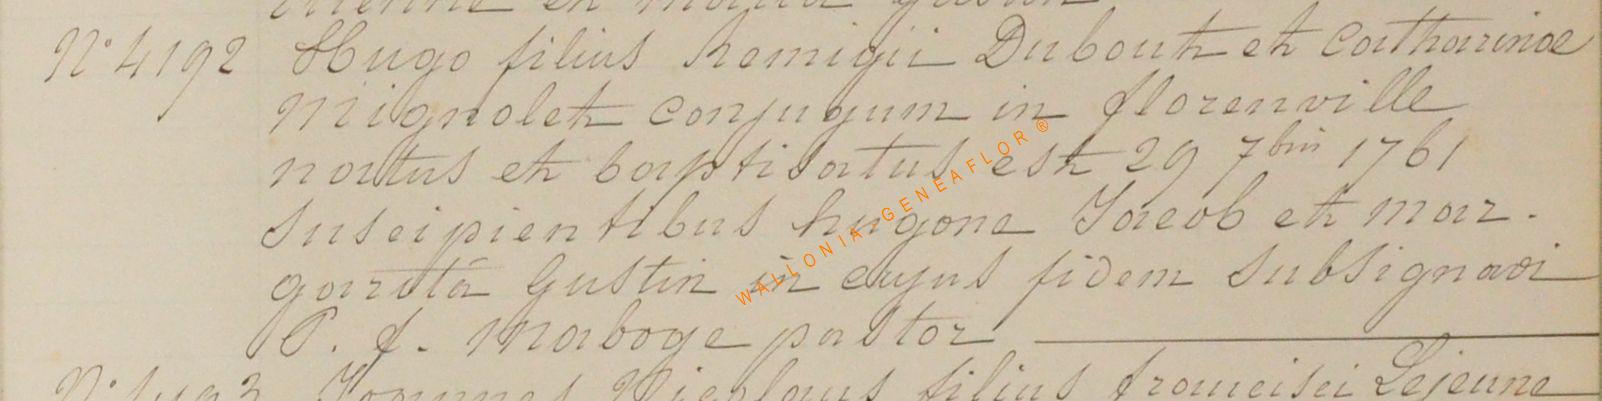 N° 4192 Hugo filius Remigii Dubout et Catharinae
Mignolet conjugum in florenville
natus et baptisatus est 29 7bris 1761
suscipientibus hugone Jacob et mar-
garetâ Gustin in cujus fidem subsignavi
P. f. Maboge pastor
Nicolaus filius francisci Lejeune
WALLONIA-GENEAFLOR ®